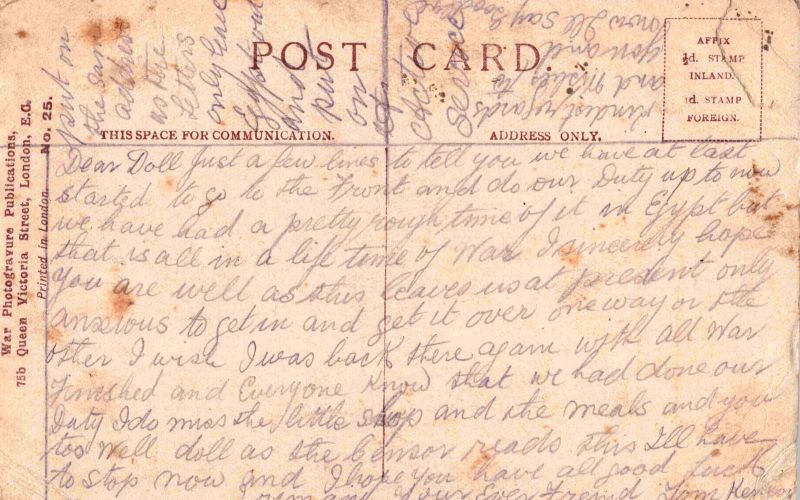 War Photogravure Publications,
75b Queen Victoria Street, London, E.C.
Printed in London.
No. 25.
POST CARD.
THIS SPACE FOR COMMUNICATION.
ADDRESS ONLY.
AFFIX
½d. STAMP
INLAND.
1d. STAMP
FOREIGN.
Dear Doll Just a few lines to tell you we have at last
started to go to the Front and do our Duty up to now
we have had a pretty rough time of it in Egypt but
that is all in a life time of War I sincerly hope
you are well as this leaves us at present only
anxious to get in and get it over one way or the
other I wish I was back there again with all War
Finished and Everyone know that we had done our
Duty I do miss the little shop and the meals and you
too well doll as the Censor reads this I'll have
to stop now and I hope you have all good luck
your Ever Friend Tom
put on
the same
address
as the
Letters
only leave
Egypt out
and
put
on
service
now I'll say Goodbye
and
kindest regards